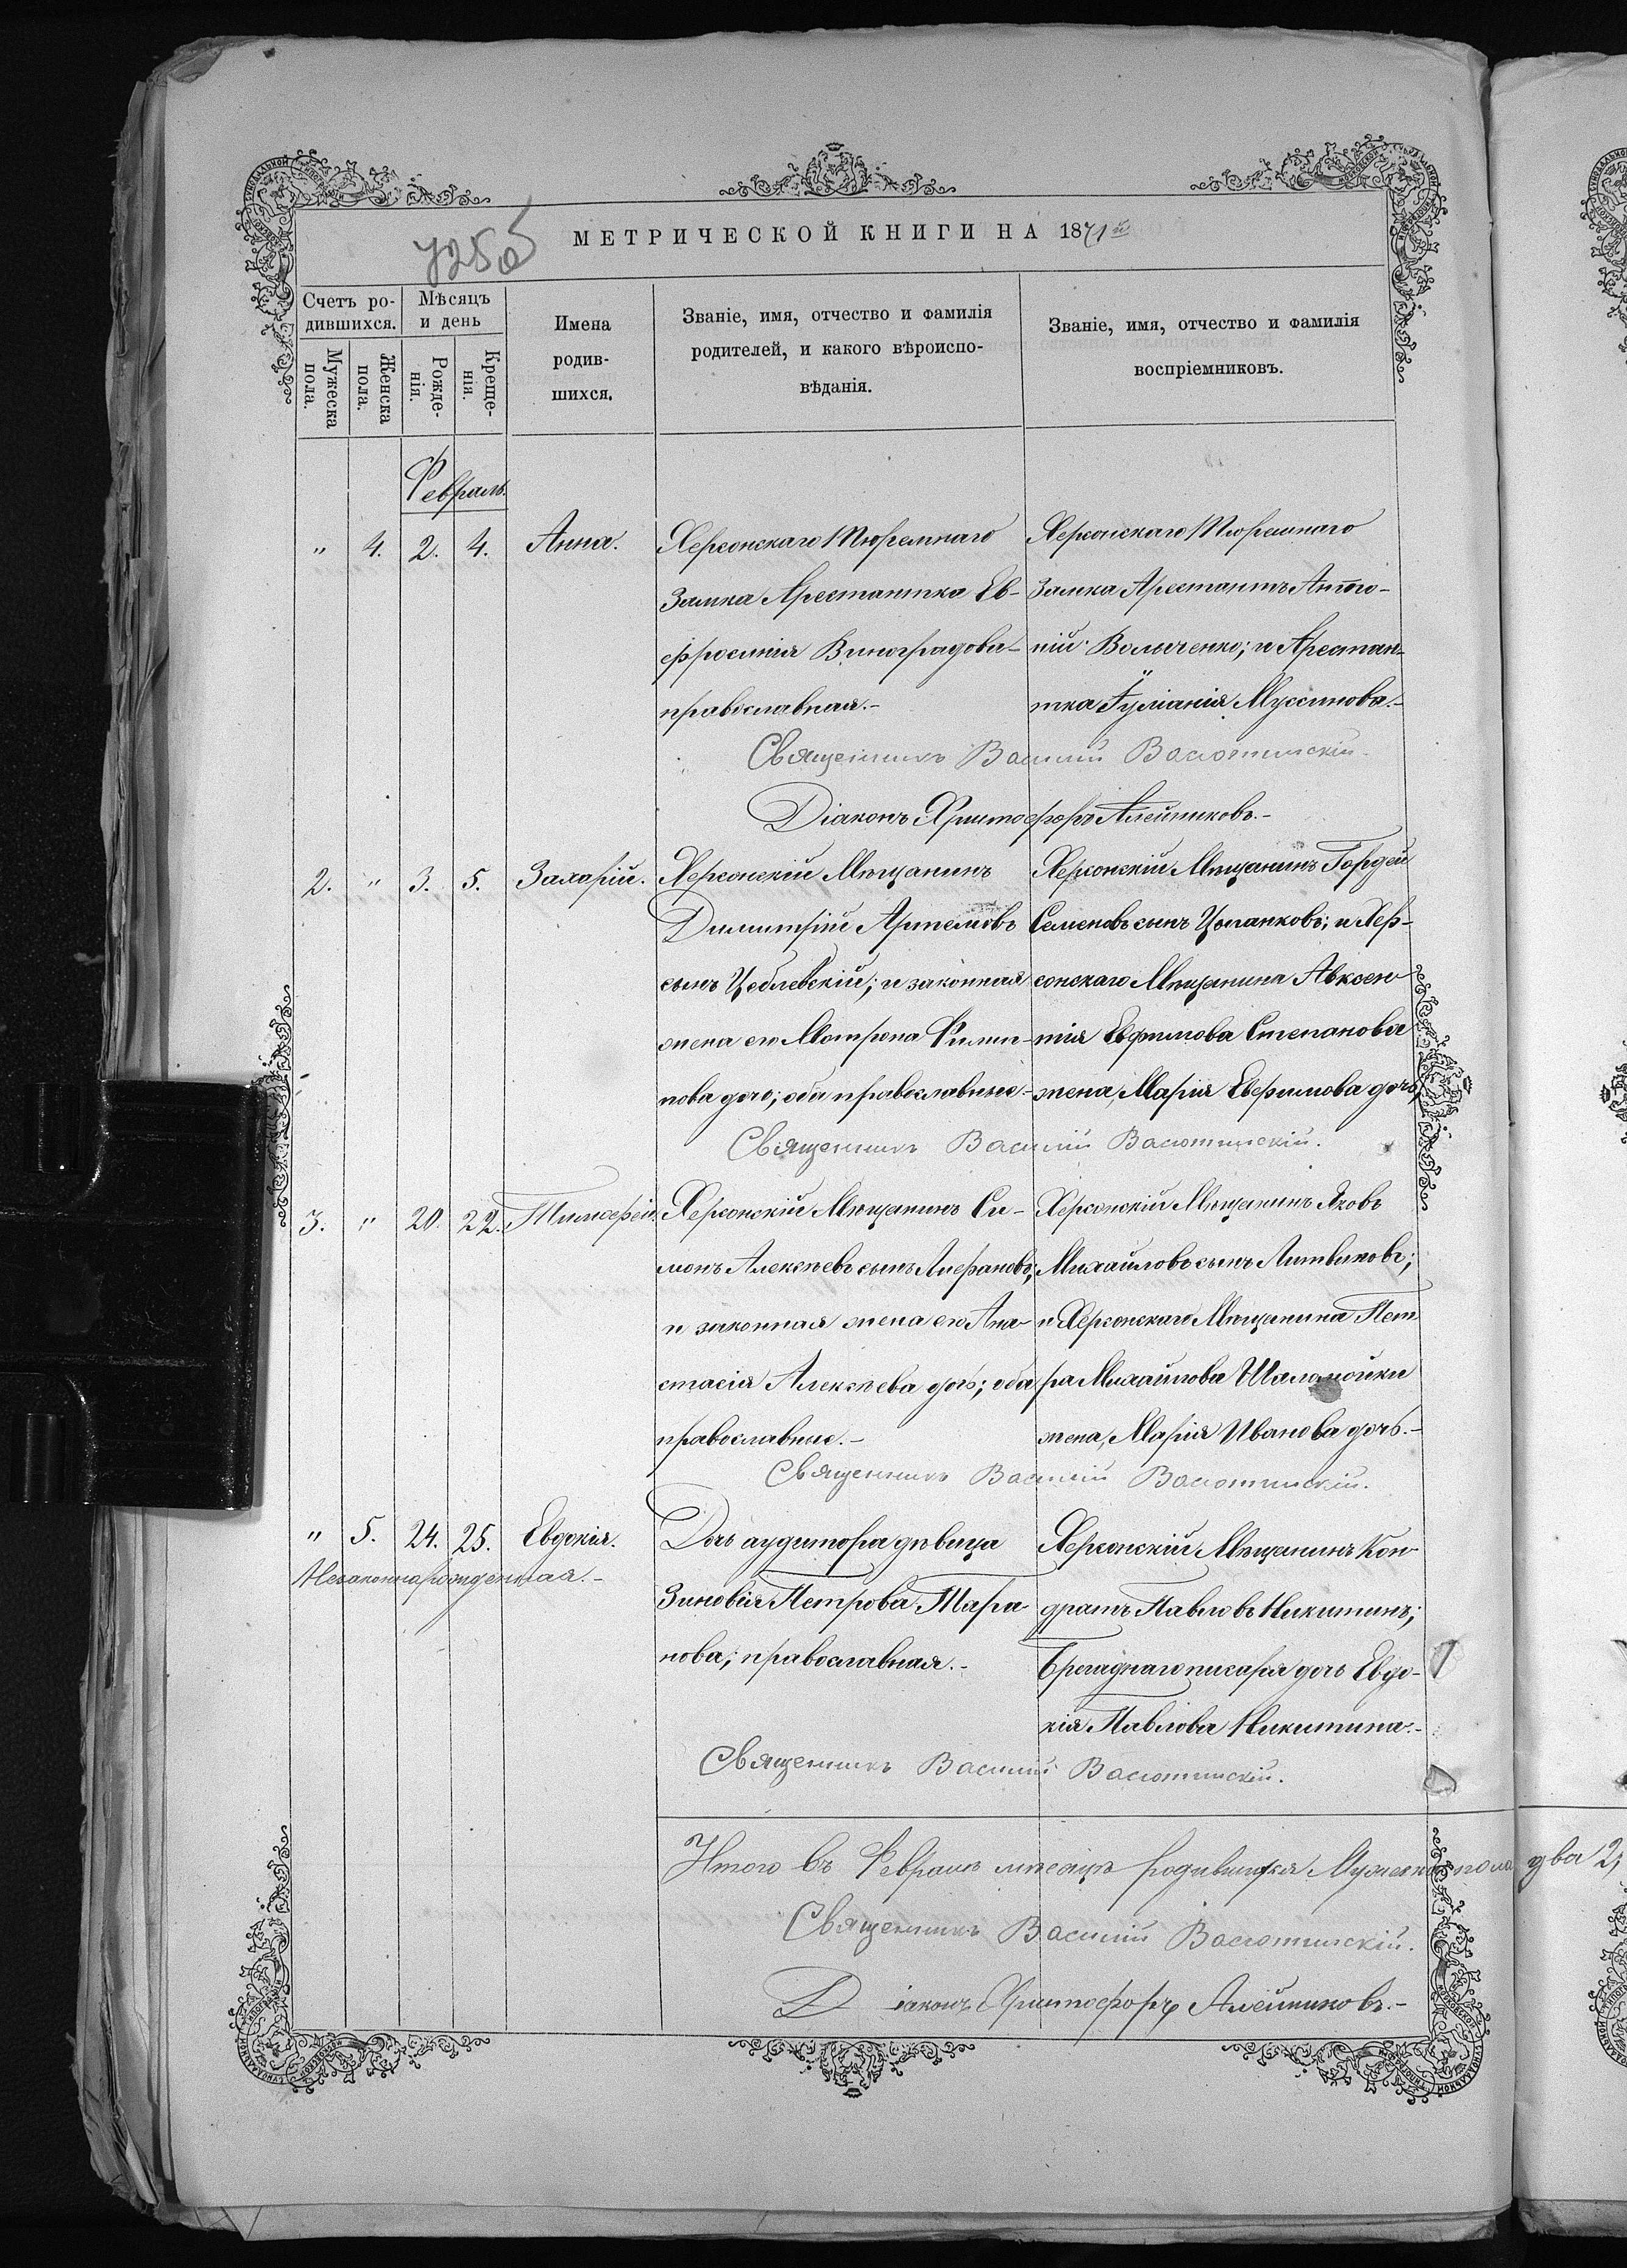 МЕТРИЧЕСКОЙ КНИГИ НА 1871й
725об
Счетъ ро-
дившихся.
Мѣсяцъ
и день
Имена
родив-
шихся.
Званіе, имя, отчество и фамилія
родителей, и какого вѣроиспо-
вѣданія.
Званіе, имя, отчество и фамилія
воспріемниковъ.
Мужеска
пола.
Женска
пола.
Рожде-
нія.
Креще-
нія.
Февраль.
" 4. 2. 4. Анна.
Херсонскаго Тюремнаго
Замка Арестантка Ев-
фросинія Виноградова
православная.-
Херсонскаго Тюремнаго
Замка Арестантъ Анто-
ній Волыченко; и Арестан-
тка Іуліанія Муссинова.-
Священникъ Василій Васютинскій.
Діаконъ Христофоръ Алейниковъ.-
2. " 3. 5. Захарій.
Херсонскій Мѣщанинъ
Димитрій Артемовъ
сынъ Цеблевскій; и законная
жена его Матрона Филип-
пова дочь; оба православные.-
Херсонскій Мѣщанинъ Гордей
Семеновъ сынъ Цыганковъ; и Хер-
сонскаго Мѣщанина Авксен-
тія Евфимова Степанова
жена, Марія Евфимова дочь
Священникъ Василій Васютинскій.
3. " 20. 22. Тимофей.
Херсонскій Мѣщанинъ Си-
монъ Алексѣевъ сынъ
и законная жена его Ана-
стасія Алексѣева дочь; оба
православные.-
Херсонскій Мѣщанинъ Яковъ
Михайловъ сынъ Литвиновъ;
и Херсонскаго Мѣщанина Пет-
ра Михайлова
жена, Марія Иванова дочь.-
Священникъ Василій Васютинскій.
" 5. 24. 25. Евдокія.
Незаконнарожденная.-
Дочь аудитора дѣвица
Зиновія Петрова Тара
нова; православная.-
Херсонскій Мѣщанинъ Кон
дратъ Павловъ Никитинъ;
Брегаднаго писаря дочь Евдо-
кія Павлова Никитина.-
Священникъ Василій Васютинскій.
Итого въ Февралѣ мѣсяцѣ родившихся Мужеска пола два 2,
Священникъ Василій Васютинскій.
Діаконъ Христофоръ Алейниковъ.-